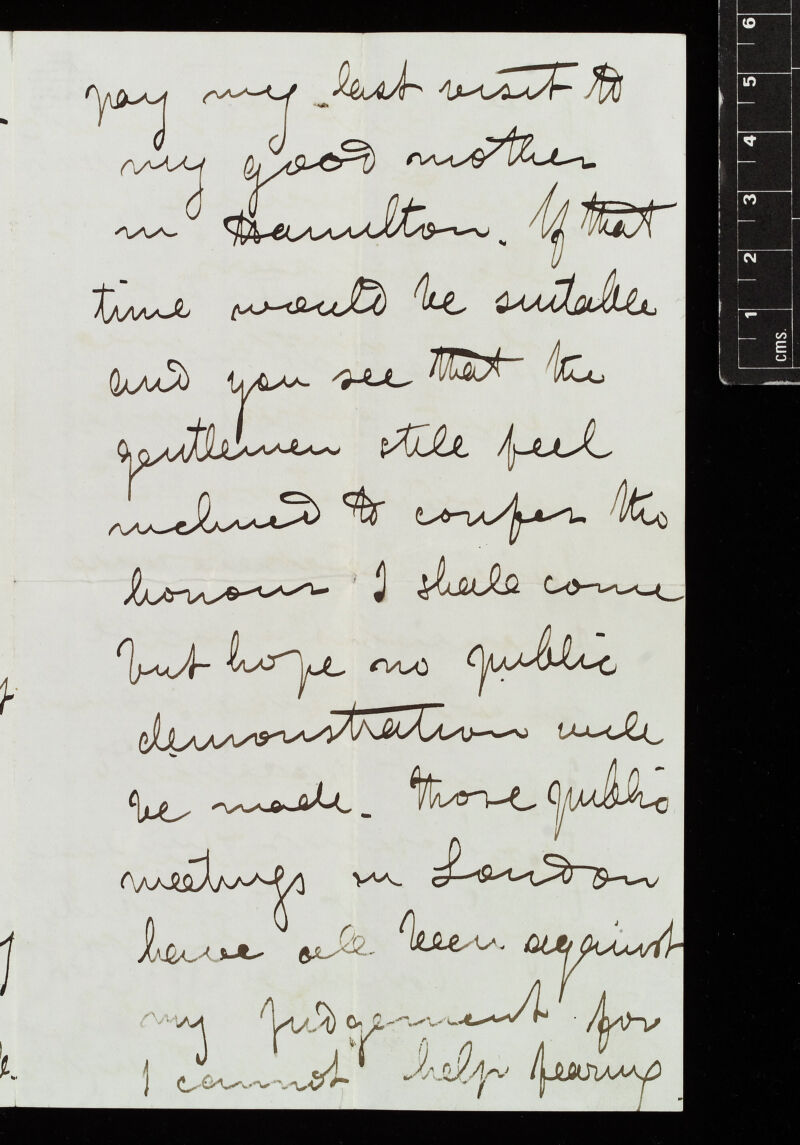 pay my last visit to
my good mother
in Hamilton. If that
time would be suitable
and you see that the
gentlemen still feel
inclined to confer the
honour I shall come
but hope no public
demonstration will
be made. Those public
meetings in London
have all been against
my judgement for
I cannot help fearing
6
5
4
3
2
1
cms.